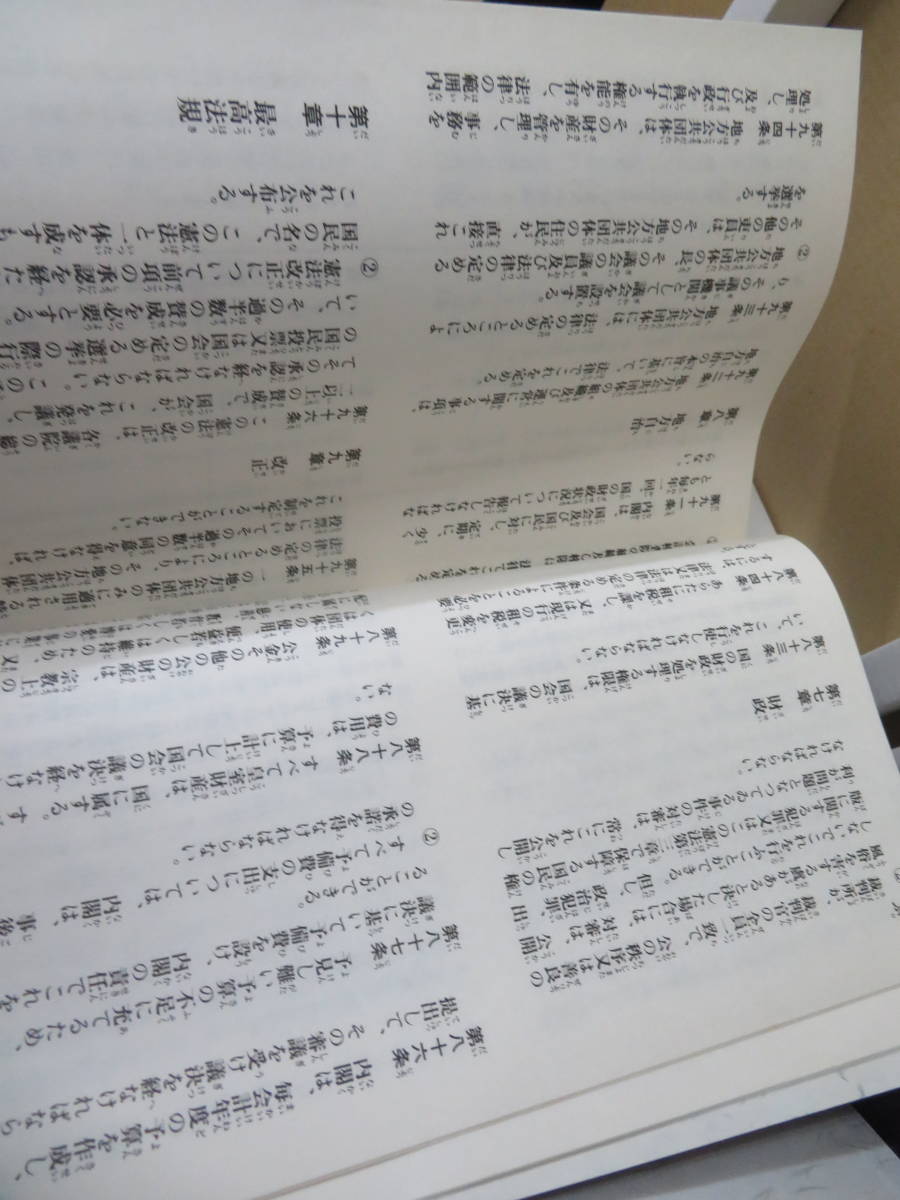 裁判所が、裁判官の全員一致で、公の秩序又は善良の
風俗を害する虞があると決した場合には、対審は、公開
しないでこれを行ふことができる。但し、政治犯罪、出
版に関する犯罪又はこの憲法第三章で保障する国民の権
利が問題となつてゐる事件の対審は、常にこれを公開し
なければならない。
第七章 財政
第八十三条 国の財政を処理する権限は、国会の議決に基
いて、これを行使しなければならない。
第八十四条 あらたに租税を課し、又は現行の租税を変更
するには、法律又は法律の定める条件によることを必要
第八十六条 内閣は、毎会計年度の予算を作成し、
提出して、その審議を受け議決を経なければなら
第八十七条 予見し難い予算の不足に充てるため、
議決に基いて予備費を設け、内閣の責任でこれを
ることができる。
② すべて予備費の支出については、内閣は、事後
の承諾を得なければならない。
第八十八条 すべて皇室財産は、国に属する。す
の費用は、予算に計上して国会の議決を経なけ
ない。
第八十九条 公金その他の公の財産は、宗教上の
団体の使用、便益若しくは維持のため、又
第九十一条 内閣は、国会及び国民に対し、定期に、少く
とも毎年一回、国の財政状況について報告しなければな
らない。
第八章 地方自治
第九十二条 地方公共団体の組織及び運営に関する事項は、
地方自治の本旨に基いて、法律でこれを定める。
第九十三条 地方公共団体には、法律の定めるところによ
り、その議事機関として議会を設置する。
② 地方公共団体の長、その議会の議員及び法律の定める
その他の吏員は、その地方公共団体の住民が、直接これ
を選挙する。
第九十四条 地方公共団体は、その財産を管理し、事務を
処理し、及び行政を執行する権能を有し、法律の範囲内
第九十五条 一の地方公共団体のみに適用される特
法律の定めるところにより、その地方公共団体
投票においてその過半数の同意を得なければ、
これを制定することができない。
第九章 改正
第九十六条 この憲法の改正は、各議院の総
二以上の賛成で、国会が、これを発議し、
てその承認を経なければならない。この
の国民投票又は国会の定める選挙の際行
いて、その過半数の賛成を必要とする。
② 憲法改正について前項の承認を経た
国民の名で、この憲法と一体を成すも
これを公布する。
第十章 最高法規